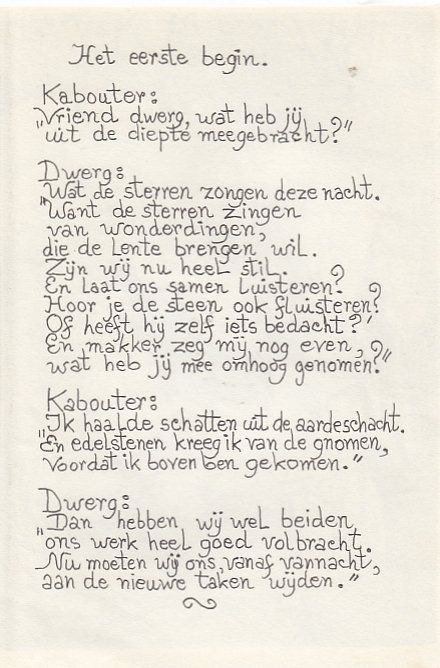 Het eerste begin.
Kabouter:
"Vriend dwerg, wat heb jij
uit de diepte meegebracht?"
Dwerg:
Wat de sterren zongen deze nacht.
"Want de sterren zingen
van wonderdingen,
die de Lente brengen wil.
Zijn wij nu heel stil.
En laat ons samen luisteren?
Hoor je de steen ook fluisteren?
Of heeft hij zelf iets bedacht?'
En makker, zeg mij nog even,
wat heb jij mee omhoog genomen?"
Kabouter:
Ik haalde schatten uit de aardeschacht.
"En edelstenen kreeg ik van de gnomen,
voordat ik boven ben gekomen."
Dwerg:
"Dan hebben, wij wel beiden
ons werk heel goed volbracht.
Nu moeten wij ons, vanaf vannacht,
aan de nieuwe taken wijden."